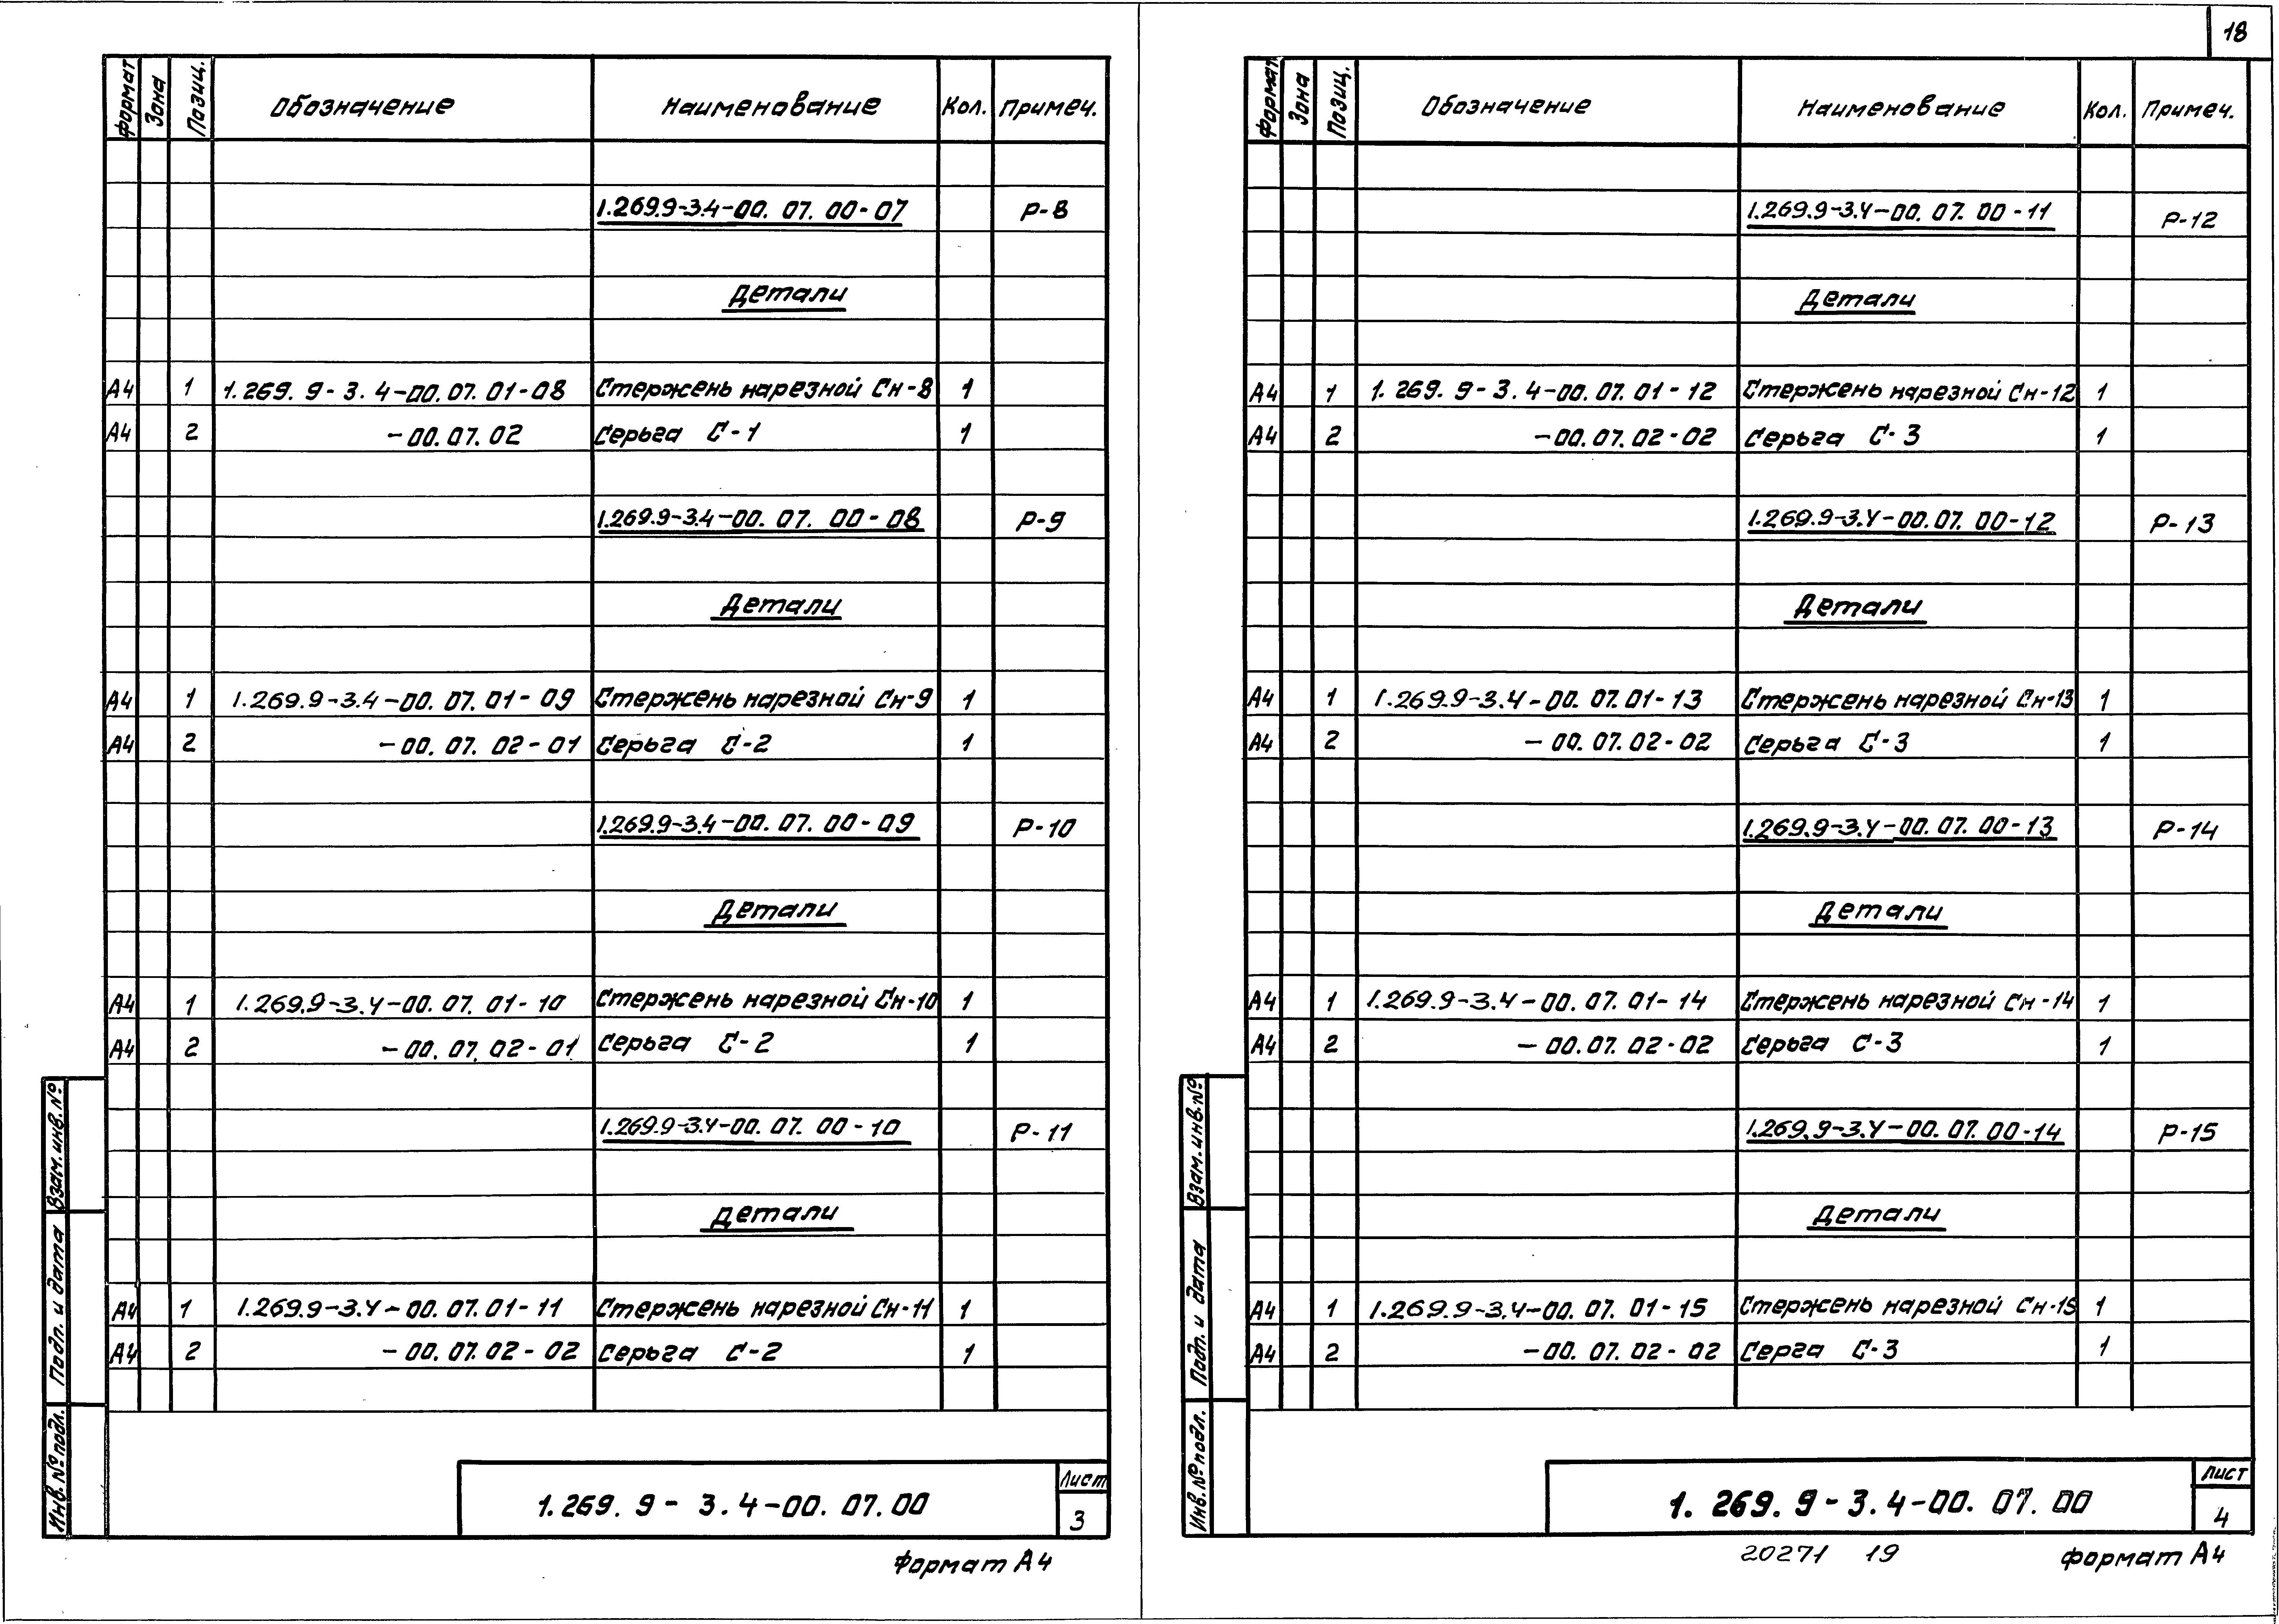 18
Формат Зона Позиц. Обозначение Наименование Кол. Примеч.
1.269.9-3.4-00. 07. 00-07 Р-8
Детали
А4 1 1.269. 9-3. 4-00. 07. 01-08 Стержень нарезной Сн-8 1
А4 2 -00. 07. 02 Серьга С-1 1
1.269.9-3.4-00. 07. 00-08 Р-9
Детали
А4 1 1.269.9-3.4-00. 07. 01-09 Стержень нарезной Сн-9 1
А4 2 -00. 07. 02-01 Серьга С-2 1
1.269.9-3.4-00. 07. 00-09 Р-10
Детали
А4 1 1.269.9-3.4-00. 07. 01-10 Стержень нарезной Сн-10 1
А4 2 -00. 07. 02-01 Серьга С-2 1
1.269.9-3.4-00. 07. 00-10 Р-11
Детали
А4 1 1.269.9-3.4-00. 07. 01-11 Стержень нарезной Сн-11 1
А4 2 -00. 07. 02-02 Серьга С-2 1
Взам. инв. №
Подп. и дата
Инв. № подл.
1. 269. 9 - 3. 4-00. 07. 00
Лист
3
Формат А4
Формат Зона Позиц. Обозначение Наименование Кол. Примеч.
1.269.9-3.4-00. 07. 00-11 Р-12
Детали
А4 1 1. 269. 9-3. 4-00. 07. 01-12 Стержень нарезной Сн-12 1
А4 2 -00. 07. 02-02 Серьга С-3 1
1.269.9-3.4-00. 07. 00-12 Р-13
Детали
А4 1 1.269.9-3.4-00. 07. 01-13 Стержень нарезной Сн-13 1
А4 2 -00. 07. 02-02 Серьга С-3 1
1.269.9-3.4-00. 07. 00-13 Р-14
Детали
А4 1 1.269.9-3.4-00. 07. 01-14 Стержень нарезной Сн-14 1
А4 2 -00. 07. 02-02 Серьга С-3 1
1.269.9-3.4-00. 07. 00-14 Р-15
Детали
А4 1 1.269.9-3.4-00. 07. 01-15 Стержень нарезной Сн-15 1
А4 2 -00. 07. 02-02 Серга С-3 1
Взам. инв. №
Подп. и дата
Инв. № подл.
1. 269. 9 - 3. 4-00. 07. 00
Лист
4
20271 19 Формат А4